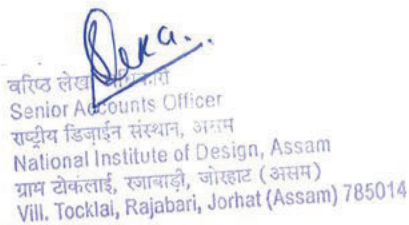 Deka..
वरिष्ठ लेखा अधिकारी
Senior Accounts Officer
राष्ट्रीय डिजाईन संस्थान, असम
National Institute of Design, Assam
ग्राम टोकलाई, रजाबाड़ी, जोरहाट (असम)
Vill. Tocklai, Rajabari, Jorhat (Assam) 785014